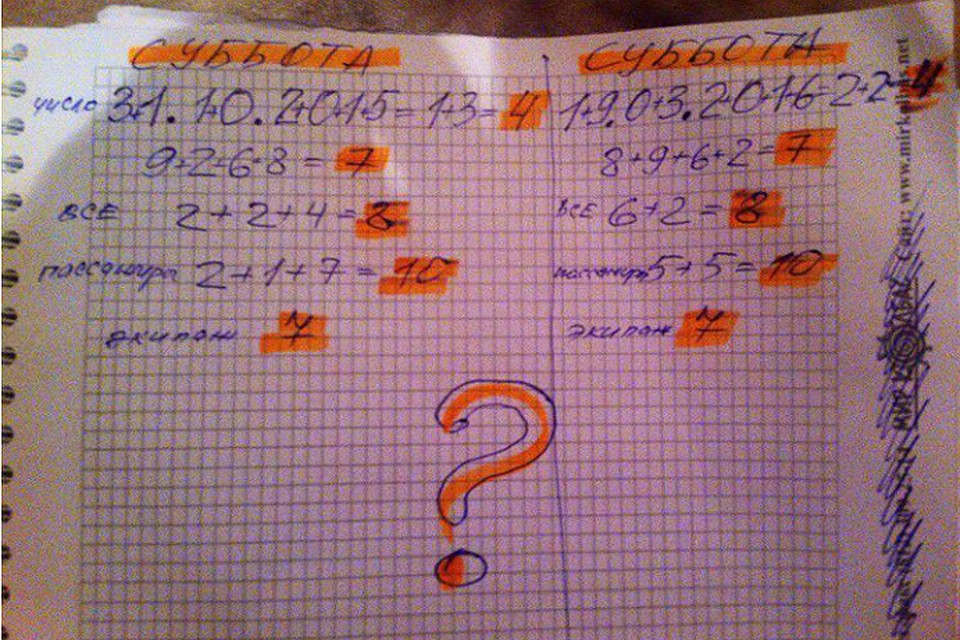 СУББОТА
число 3+1.1+0.2+0+1+5=1+3=4
9+2+6+8=7
ВСЕ 2+2+4=8
пассажиры 2+1+7=10
экипаж 7
СУББОТА
1+9.0+3.2+0+1+6=2+2=4
8+9+6+2=7
ВСЕ 6+2=8
пассажиры 5+5=10
экипаж 7
?
Сайт: www.mirk
.net